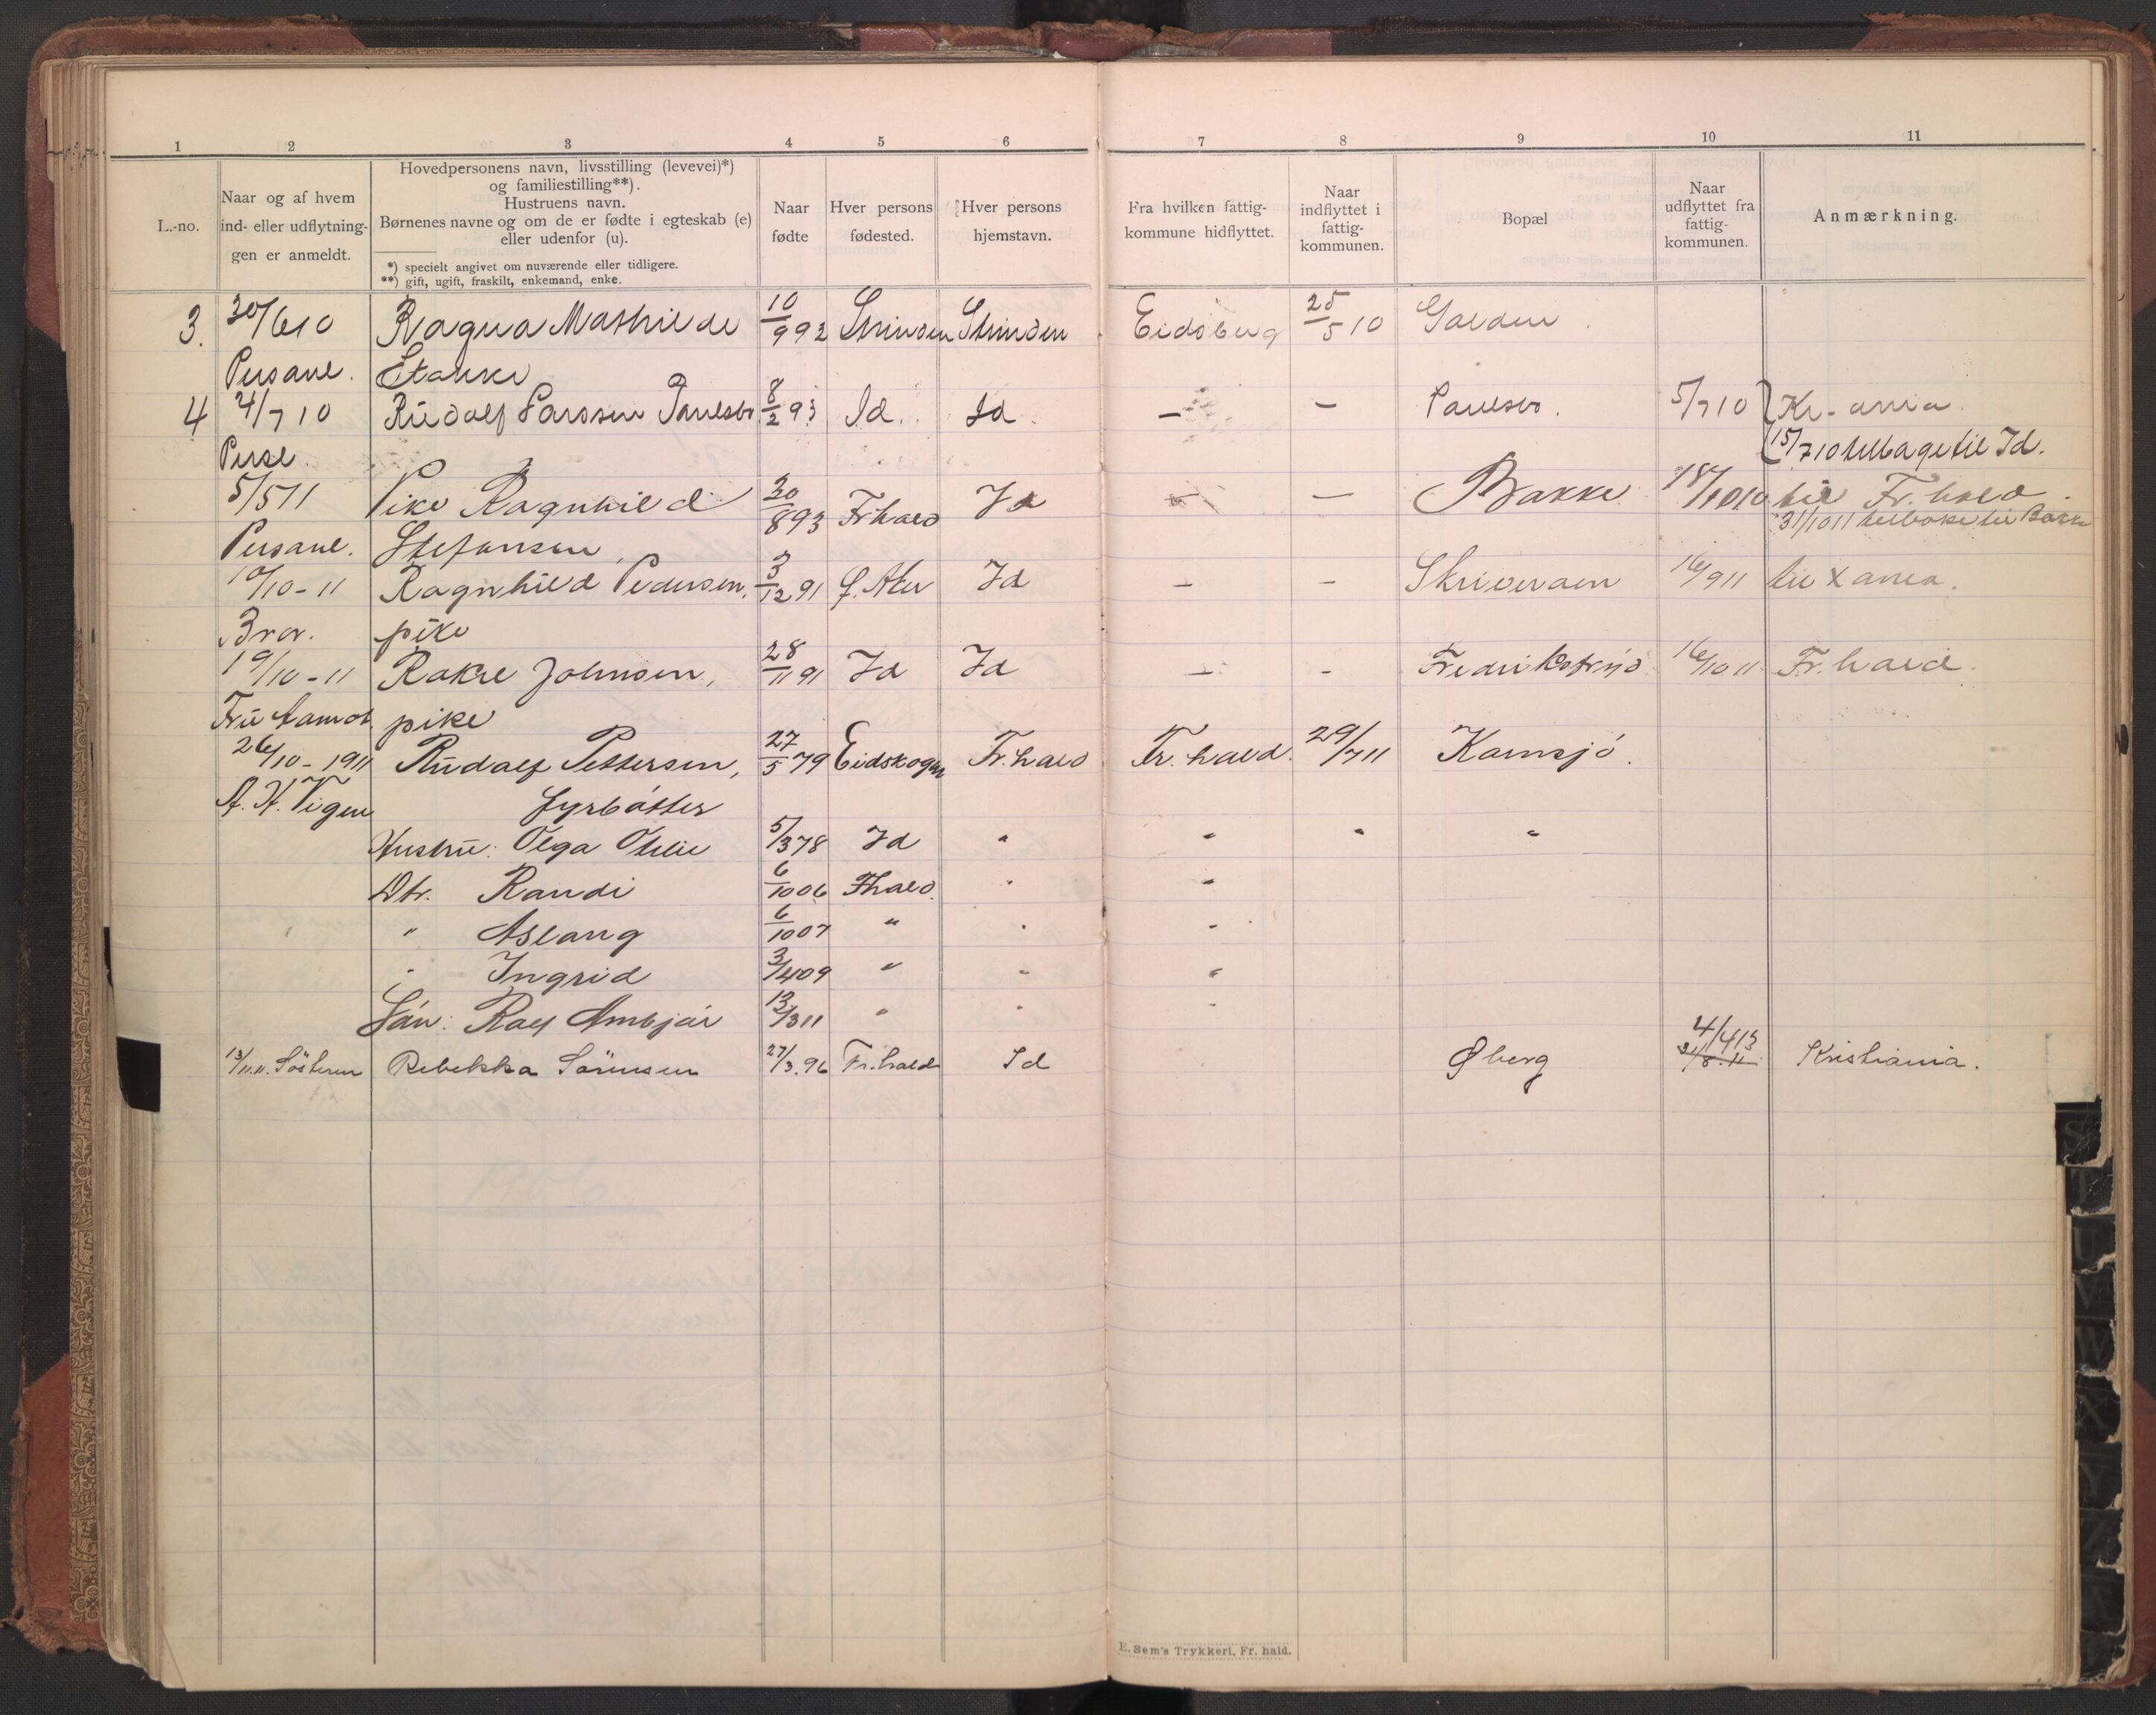 1 2 3 4 5 6 7 8 9 10 11
L.-no.
Naar og af hvem
ind- eller udflytnin-
gen er anmeldt.
Hovedpersonens navn, livsstilling (levevei)*)
og familiestilling**).
Hustruens navn.
Børnenes navne og om de er fødte i egteskab (e)
eller udenfor (u).
*) specielt angivet om nuværende eller tidligere.
**) gift, ugift, fraskilt, enkemand, enke.
Naar
fødte
Hver persons
fødested.
Hver persons
hjemstavn.
Fra hvilken fattig-
kommune hidflyttet.
Naar
indflyttet i
fattig-
kommunen.
Bopæl
Naar
udflyttet fra
fattig-
kommunen.
Anmærkning.
3. 30/6 10 Ragna Mathilde 10/9 92 Strinden Strinden Eidsberg 25/5 10
Persanl. Stakke
4 4/7 10 Rudolf Larssen Paulsbo 8/2 93 Id. Id — — Paulsbo. 5/7 10 Kr-ania.
Persl. 15/7 10 tilbage til Id.
5/5 11 Pike Ragnhild 20/8 93 Frhald Id — — Bakke 18/10 10 til Fr. hald.
31/10 11 tilbake til Bakke
Persanl. Stefansen
10/10-11 Ragnhild Pedersen, 3/12 91 Id — — 16/9 11 til Xania.
pike
19/10-11 Rakel Johnsen, 28/11 91 Id Id — - 16/10 11 Fr. hald.
Fru Aamot pike
26/10-1911 Rudolf Pettersen, 27/5 79 Eidskogen Fr. hald Fr. hald. 29/7 11 Kornsjö.
A. H. Vigen fyrböter
Hustru: Olga Otelie 5/3 78 Id " " " "
Dtr. Randi 6/10 06 Fhald. " "
" Aslaug 6/10 07 " " "
" Ingrid 3/4 09 " " "
Sön: Ralf Ambjör 13/3 11 " " "
13/11.11. Rebekka Sörensen 27/3.96 Fr.hald Id Øberg 4/4 13 Kristiania.
31/8.11
E. Sem's Trykkeri, Fr. hald.